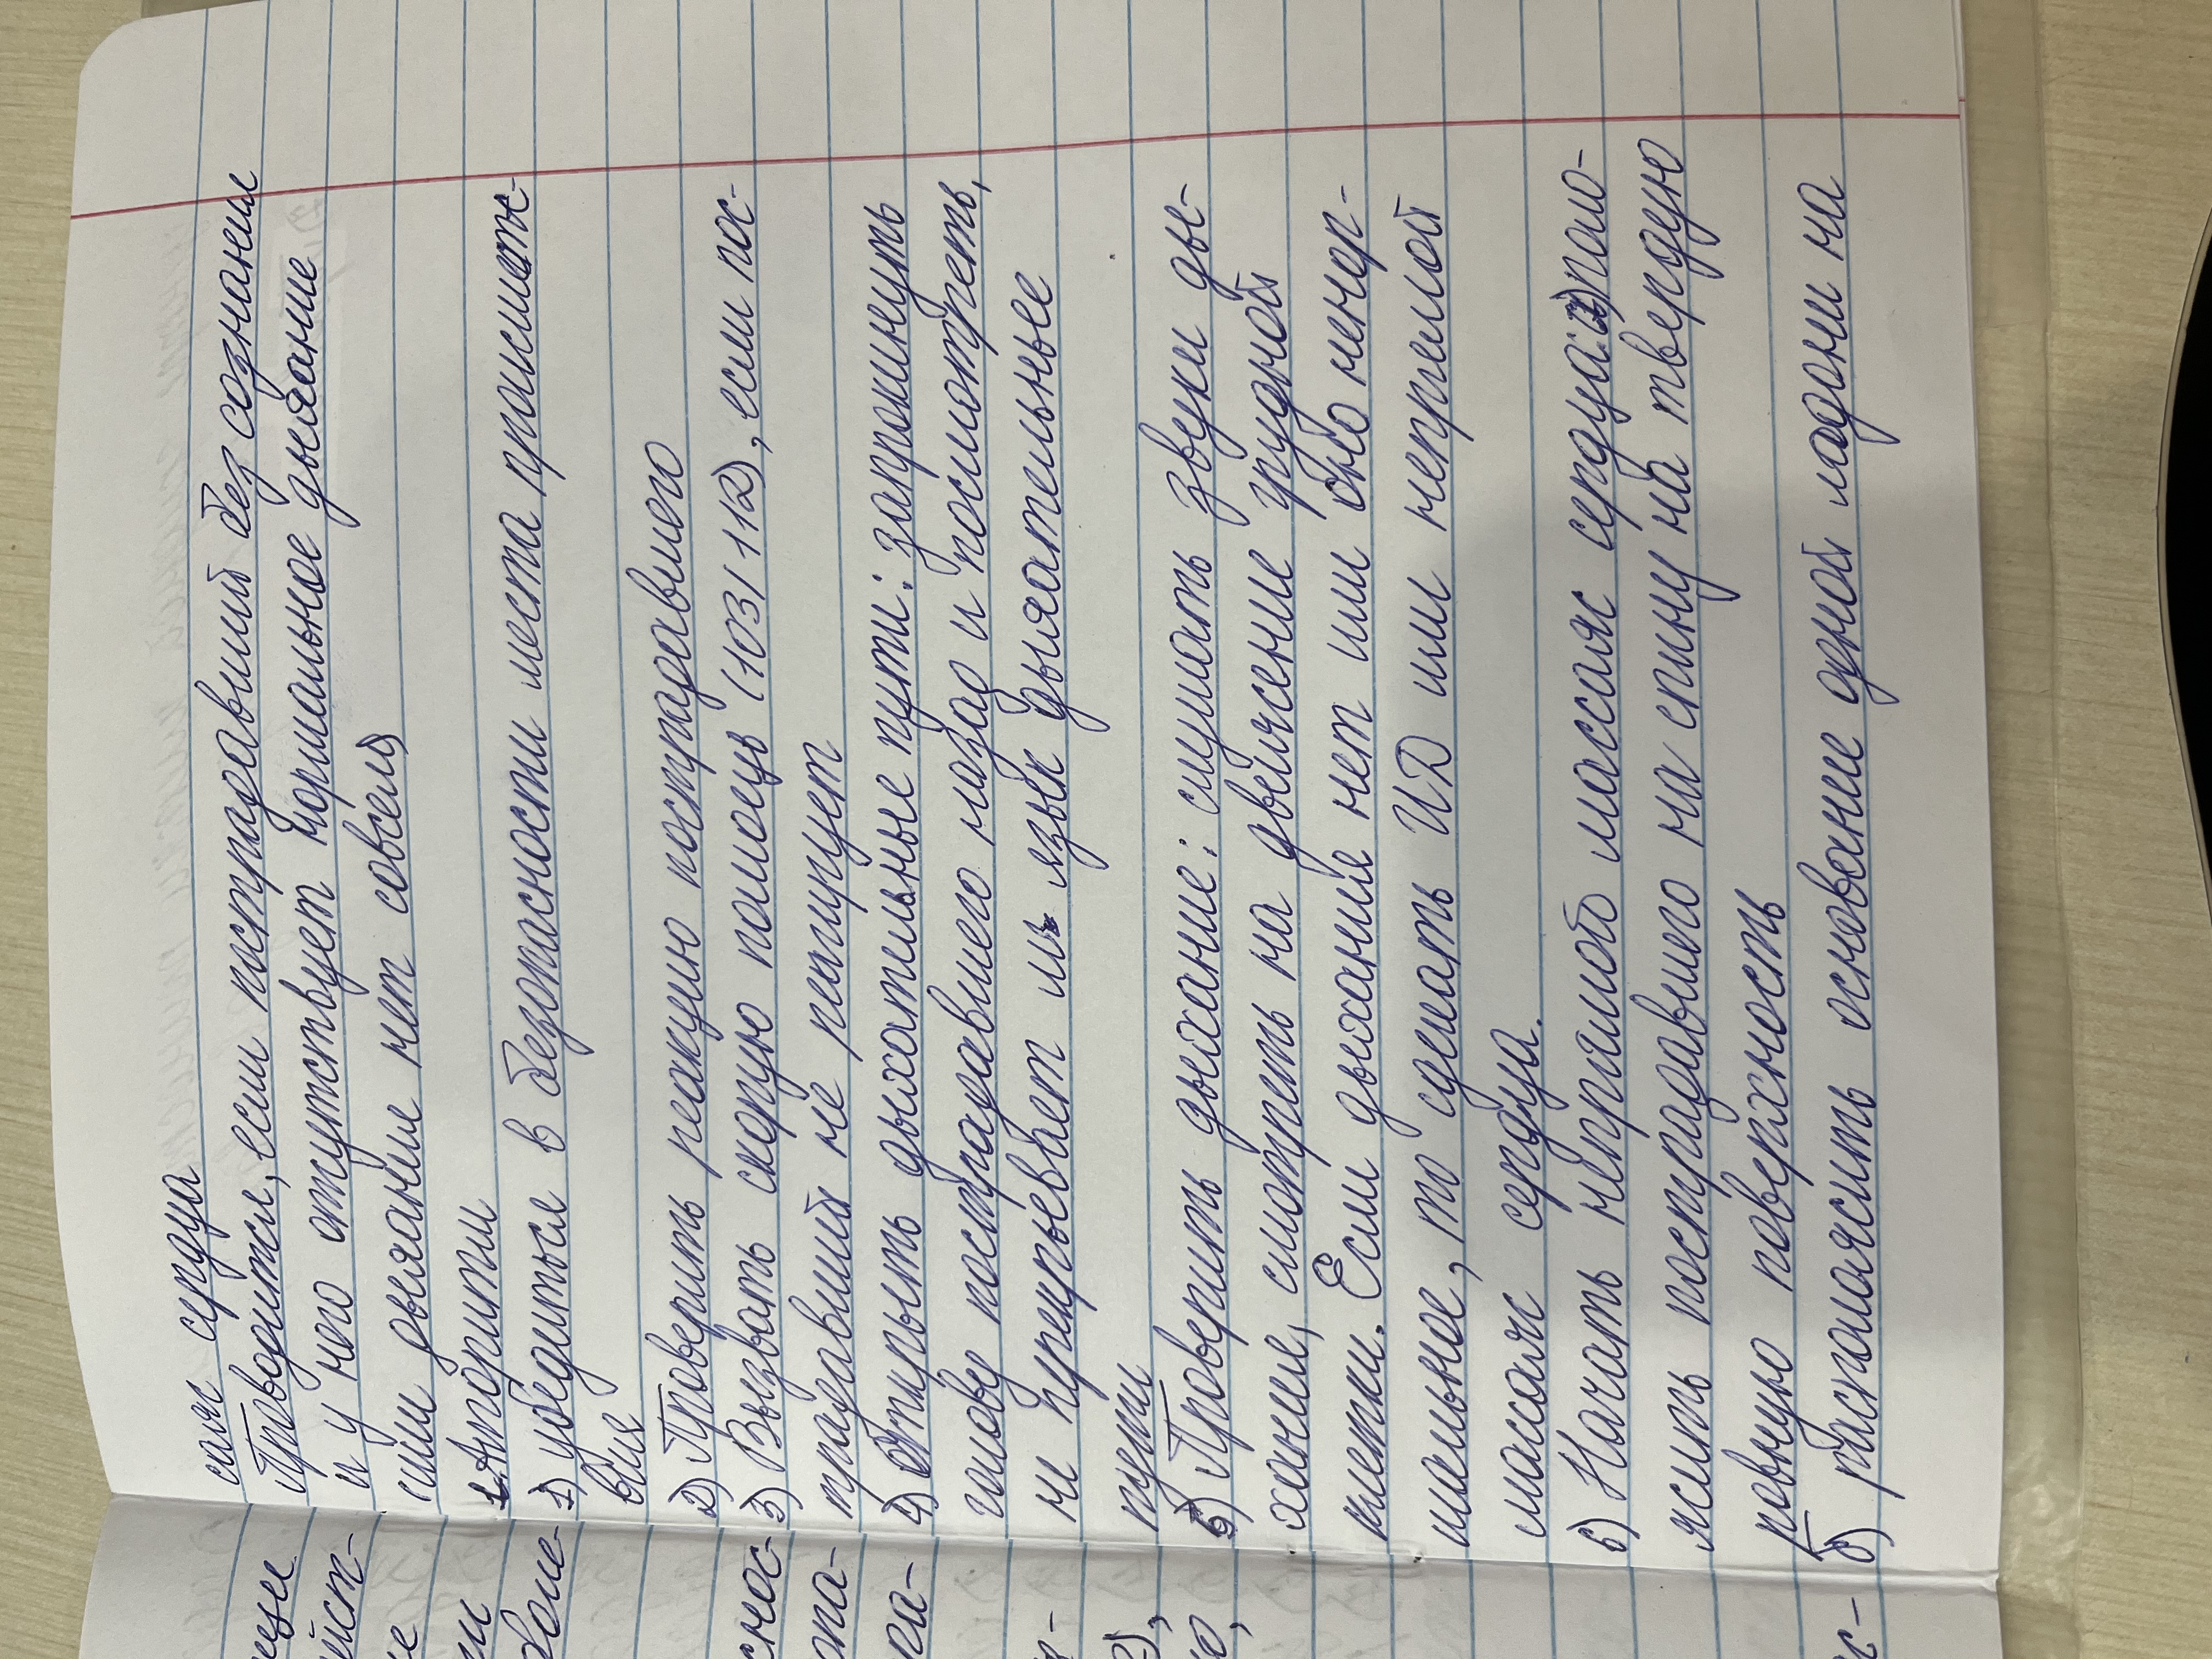 саж сердца
Проводится, если пострадавший без сознания
и у него отсутствует нормальное дыхание
(или дыхание нет совсем)
1. Алгоритм
1) убедиться в безопасности места происшест-
вия
2) Проверить реакцию пострадавшего
3) Вызвать скорую помощь (103/112), если пос-
традавший не реагирует
4) открыть дыхательные пути: запрокинуть
голову пострадавшего назад и посмотреть,
не прекрывает ли язык дыхательные
пути
5) Проверить дыхание: слушать звуки ды-
хание, смотреть на движение грудной
клетки. Если дыхания нет или оно ненор-
мальное, то сделать ИД или непрямой
массаж сердца.
6) Начать непрямой массаж сердца: а) поло-
жить пострадавшего на спину на твердую
ровную поверхность
б) расположить основание одной ладони на